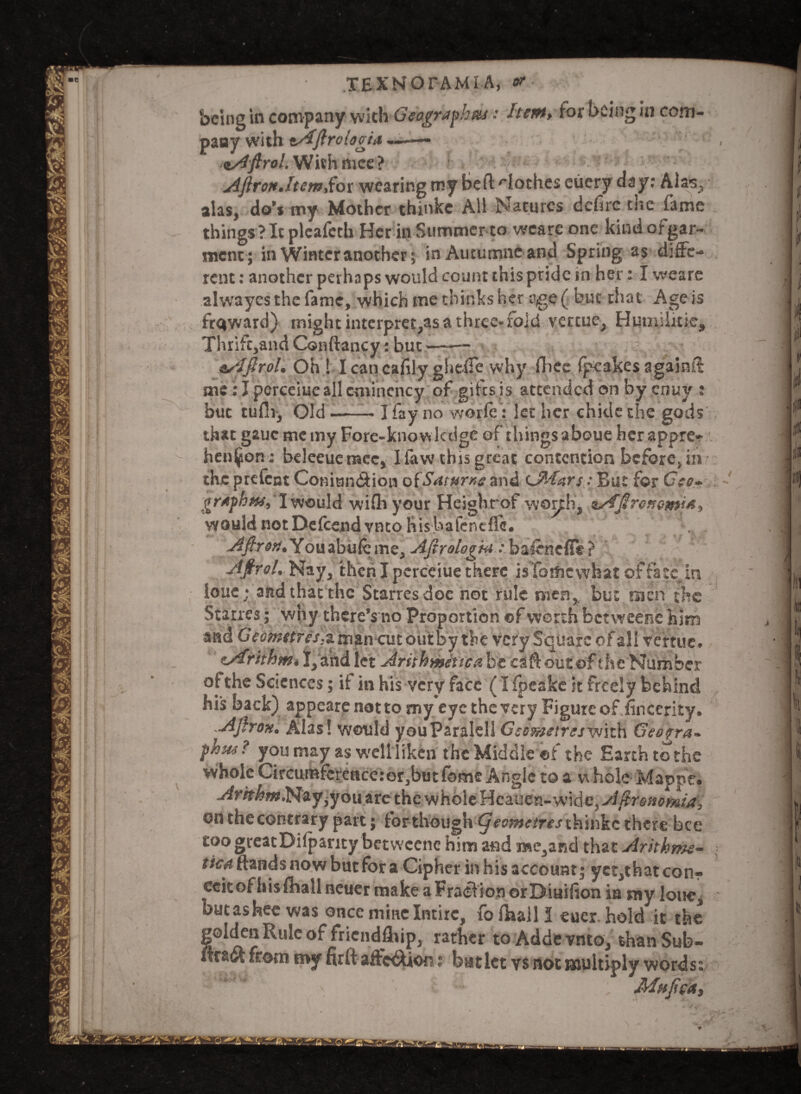 TEXNOΓAMIA, or
being in company with Geographus: Item, for being in com-
pany with Aſtrologia ——
Aſtrol. With mee?
Aſtron. Item, for wearing my beſt clothes euery day: Alas,
alas, do's my Mother thinke All Natures deſire the ſame
things? It pleaſeth Her in Summer to weare one kind of gar-
ment; in Winter another; in Autumne and Spring as diffe-
rent: another perhaps would count this pride in her: I weare
alwayes the ſame, which me thinks her age (but that Age is
froward) might interpret, as a three-fold vertue, Humilitie,
Thrift, and Conſtancy: but ——
Aſtrol. Oh! I can eaſily gheſſe why ſhee ſpeakes againſt
me: I perceiue all eminency of gifts is attended on by enuy:
but tuſh, Old —— I ſay no worſe: let her chide the gods
that gaue me my Fore-knowledge of things aboue her appre-
henſion: beleeue mee, I ſaw this great contention before, in
the preſent Coniunction of Saturne and Mars: But for Geo-
graphus, I would wiſh your Height of worth, Aſtronomia,
would not Deſcend vnto his baſeneſſe.
Aſtron. You abuſe me, Aſtrologia: baſeneſſe?
Aſtrol. Nay, then I perceiue there is ſomewhat of fate in
loue; and that the Starres doe not rule men, but men the
Starres; why there's no Proportion of worth betweene him
and Geometres, a man cut out by the very Square of all vertue.
Arithm. I, and let Arithmetica be caſt out of the Number
of the Sciences; if in his very face (I ſpeake it freely behind
his back) appeare not to my eye the very Figure of ſincerity.
Aſtron. Alas! would you Paralell Geometres with Geogra-
phus? you may as well liken the Middle of the Earth to the
whole Circumference: or, but ſome Angle to a whole Mappe.
Arithm. Nay, you are the whole Heauen-wide, Aſtronomia,
on the contrary part; for though Geometres thinke there bee
too great Diſparity betweene him and me, and that Arithme-
tica ſtands now but for a Cipher in his account; yet, that con-
ceit of his ſhall neuer make a Fraction or Diuiſion in my loue,
but as hee was once mine Intire, ſo ſhall I euer hold it the
golden Rule of friendſhip, rather to Adde vnto, than Sub-
ſtract from my firſt affection: but let vs not multiply words:
Muſica,